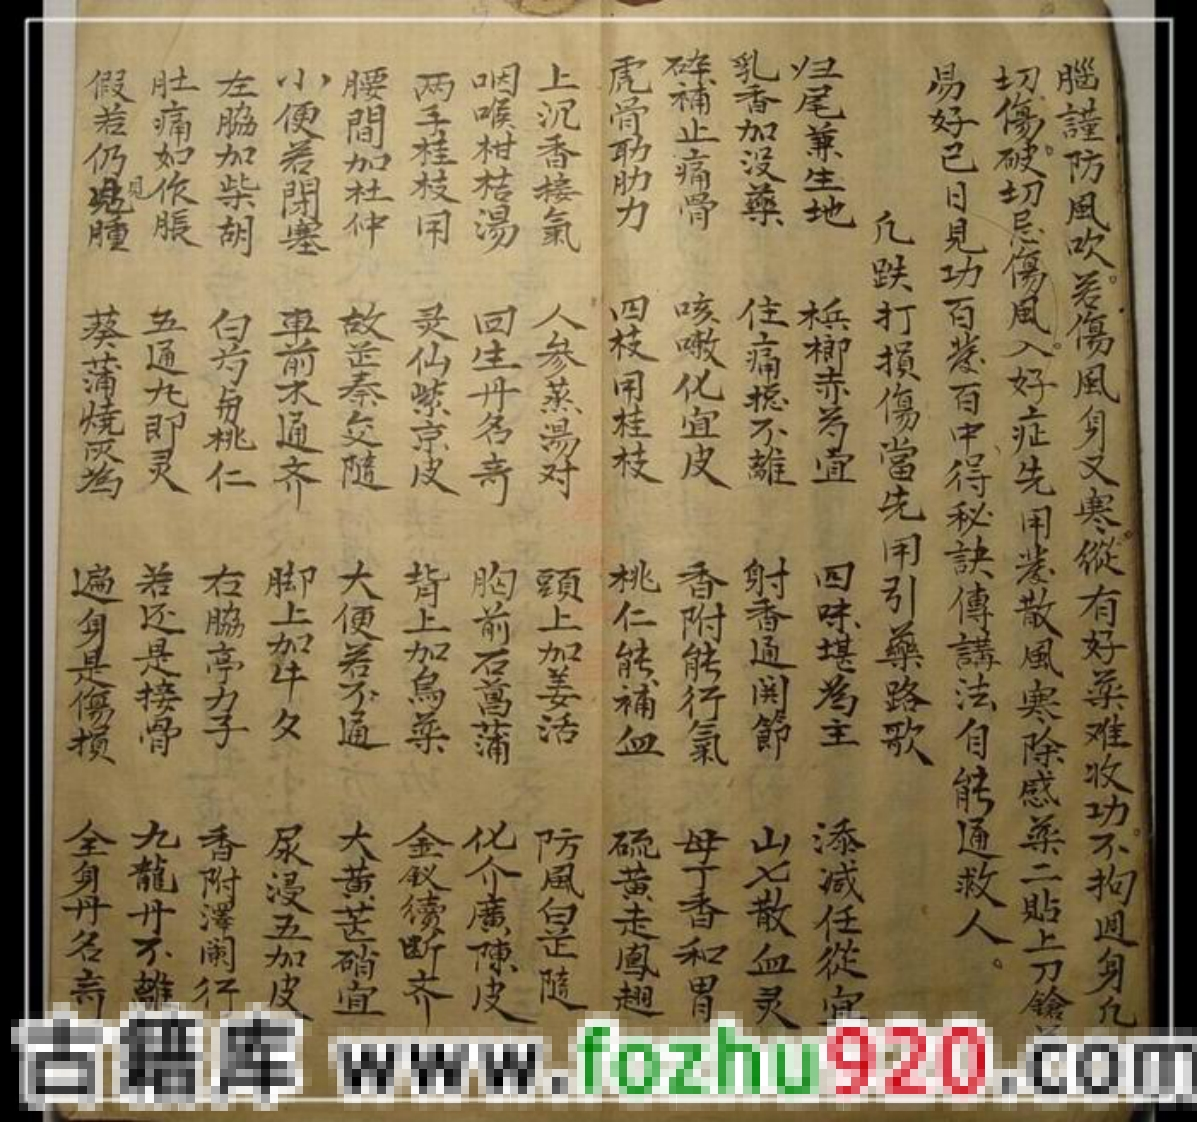 腦謹防風吹。若傷風身又寒。縱有好藥难收功。不拘週身凢
切傷破。切忌傷風。入好症先用發散風寒除感藥二貼上刀鎗
易好已日見功百發百中得秘訣傳講法自能通救人。
凢跌打損傷當先用引藥路歌
归尾兼生地 梹榔赤芍宜 四味堪為主 添减任從宜
乳香加没藥 住痛摠不離 射香通関節 山七散血灵
碎補止痛骨 咳嗽化宜皮 香附能行氣 母丁香和胃
虎骨助肋力 四枝用桂枝 桃仁能補血 硫黄走鳳翅
上沉香接氣 人參蒸湯对 頭上加姜活 防風白芷隨
咽喉柑桔湯 回生丹名竒 胸前石菖蒲 化介廣陳皮
两手桂枝用 灵仙紫京皮 背上加烏藥 金釵續斷齐
腰間加杜仲 故芷秦艽隨 大便若不通 大黄芒硝宜
小便若閉塞 車前木通齐 脚上加牛夕 尿浸五加皮
左脇加柴胡 白芍与桃仁 右脇亭力子 香附澤阑行
肚痛如作脹 五通九即灵 若还是接骨 九龍丹不離
假若仍見腫 葵蒲燒灰為 遍身是傷損 全身丹名竒
古籍库 www.fozhu920.com